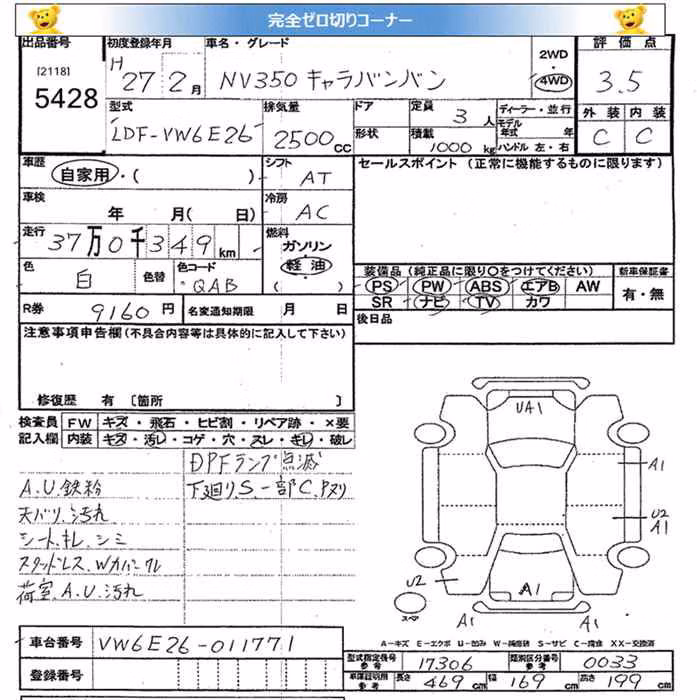 完全ゼロ切りコーナー
出品番号 初度登録年月 車名・グレード 2WD・4WD 評価点
[2118]
5428
H 27 2月 NV350 キャラバンバン 3.5
型式 排気量 ドア 定員 3人 ディーラー・並行 外装 内装
LDF-VW6E26 2500cc 形状 積載 1000kg モデル年式 年 ハンドル 左・右 C C
車歴 自家用・( ) シフト AT セールスポイント(正常に機能するものに限ります)
車検 年 月( 日) 冷房 AC
走行 37万0千349km 燃料 ガソリン 軽油 ( )
色 白 色替 色コード QAB
装備品(純正品に限り○をつけてください) 新車保証書
PS PW ABS エアB AW 有・無
SR ナビ TV カワ
R券 9160円 名変通知期限 月 日 後日品
注意事項申告欄(不具合内容等は具体的に記入して下さい)
修復歴 有〔箇所 〕
検査員 FW キズ・飛石・ヒビ割・リペア跡・×要
記入欄 内装 キズ・汚レ・コゲ・穴・スレ・キレ・破レ
DPFランプ点滅
A.U.鉄粉 下廻り.S.一部C.Pヌリ
天バリ.汚れ
シート.キレ.シミ
スタッドレス.Wカバークル
荷室.A.U.汚れ
UA1
A1
U2
A1
U2
A1
スペア
A1 A1
A-キズ E-エクボ U-凹み W-補修跡 S-サビ C-腐食 XX-交換済
車台番号 VW6E26-011771
登録番号
型式指定番号 参考 17306 類別区分番号 参考 0033
車庫証明用 参考 長さ 469cm 幅 169cm 高さ 199cm